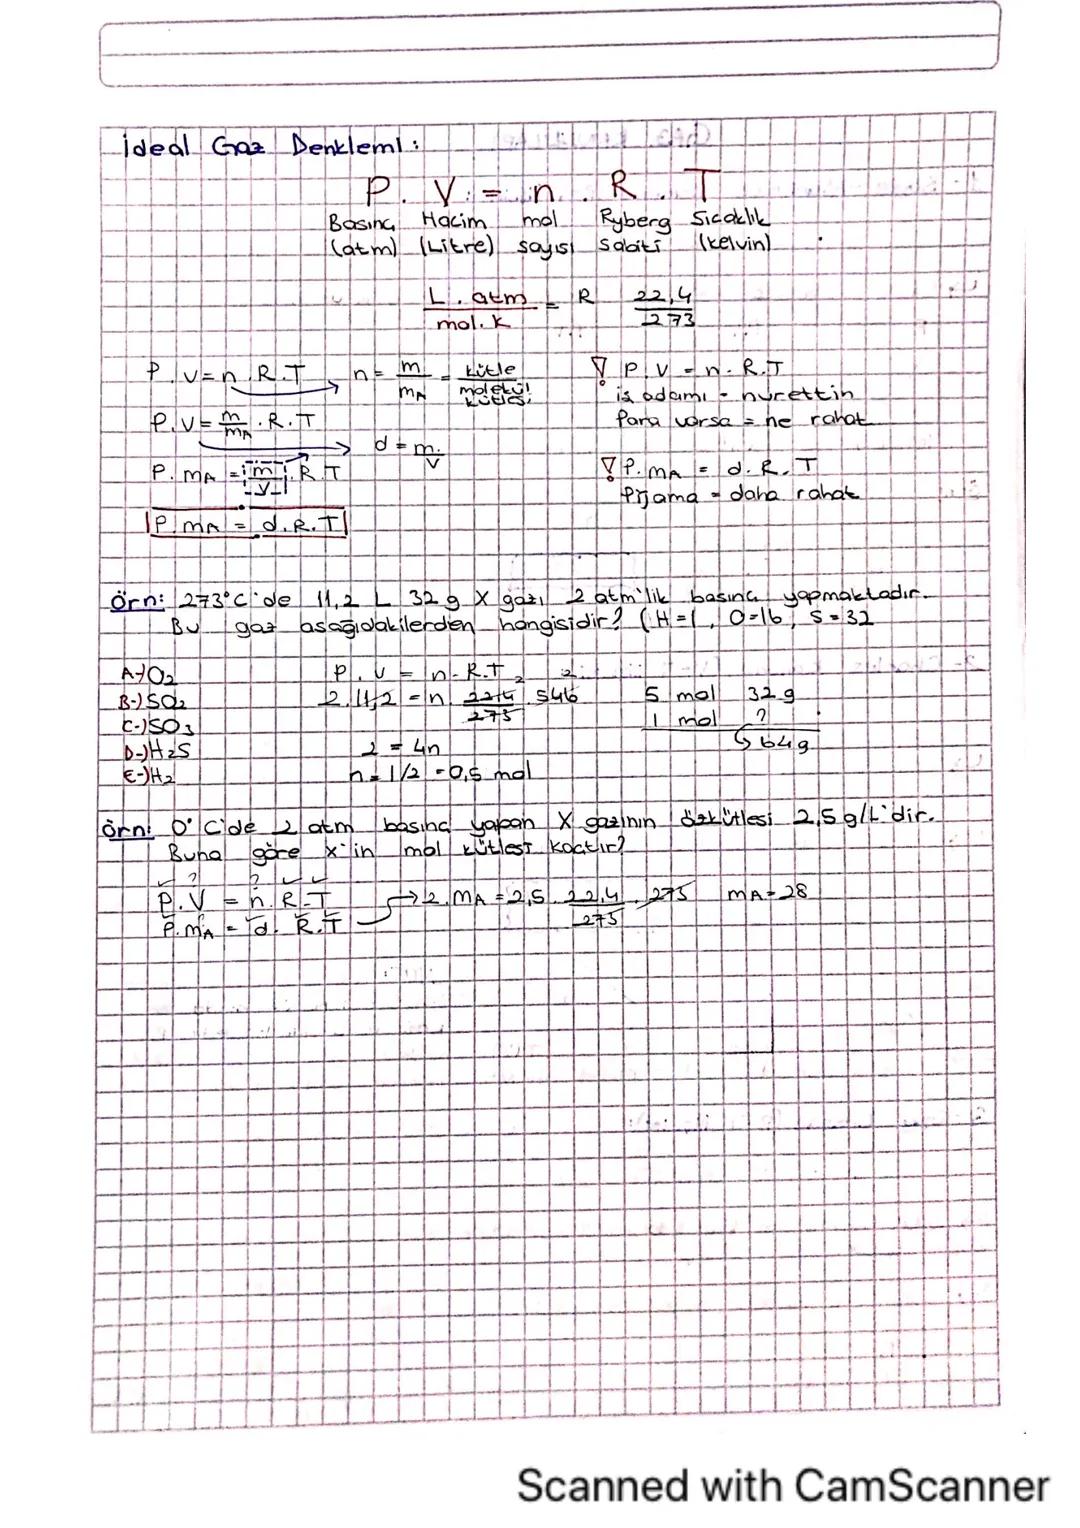 İdeal Gaz Denklemi:
P. V = n . R . T
Basınç Hacim mol Ryberg Sıcaklık
(atm) (Litre) sayısı Sabiti (kelvin)
L . atm = R 22,4
mol. K 273
P . V = n . R . T n = m = kütle
mA molekül kütlesi
P. V = m . R . T
mA
d = m
V
P. mA = m . R. T
V
P. mA = d. R. T
! P. V = n. R. T
iş adamı = nurettin
Para varsa = ne rahat
! P. mA = d. R. T
Pijama = daha rahat
Örn: 273°C'de 11,2 L 32 g X gazı 2 atm'lik basınç yapmaktadır.
Bu gaz aşağıdakilerden hangisidir? (H=1, O=16, S=32
A-) O2
B-) SO2
C-) SO3
D-) H2S
E-) H2
P . V = n. R. T
2. 11,2 = n. 22,4 . 546 2
273
2 = 4n
n = 1/2 = 0,5 mol
5 mol 32 g
1 mol ?
64g
Örn: 0°C'de 2 atm basınç yapan X gazının özkütlesi 2,5 g/L'dir.
Buna göre X'in mol kütlesi kaçtır?
✓ ? ? ✓ ✓
P. V = n. R. T
P. mA = d. R. T → 2. mA = 2,5 . 22,4 . 273 mA = 28
273
Scanned with CamScanner